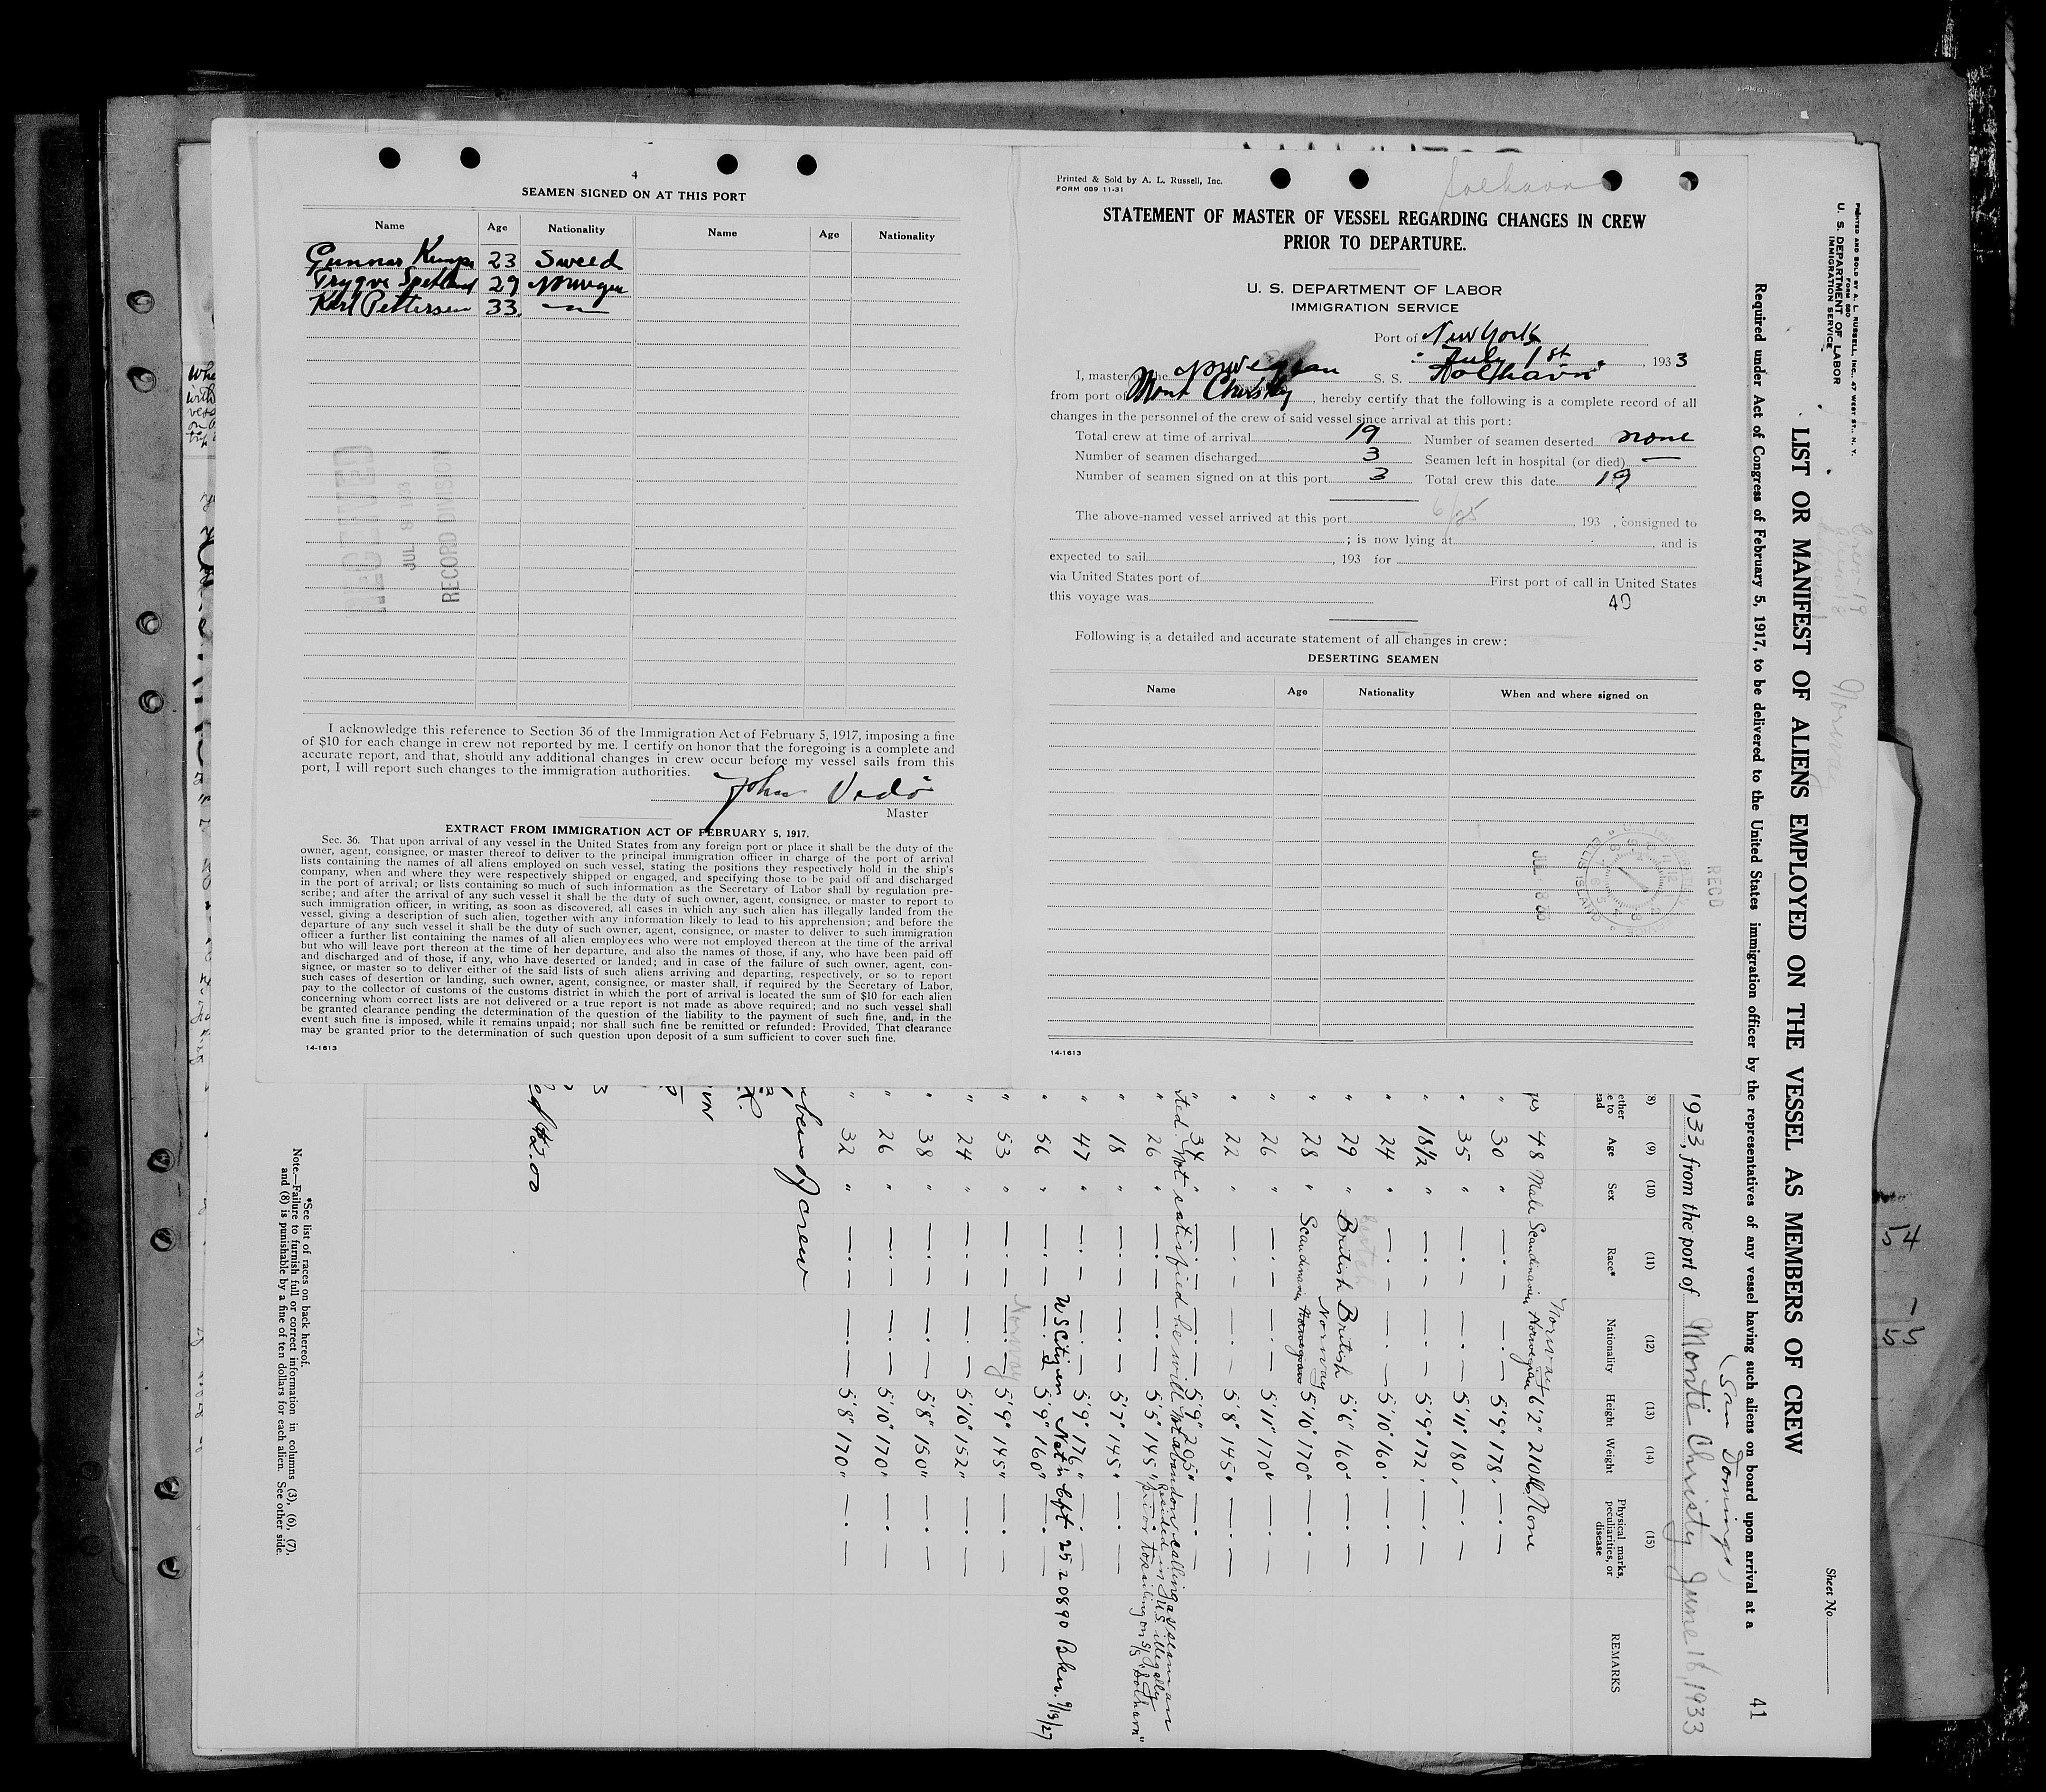 4
SEAMEN SIGNED ON AT THIS PORT
Name Age Nationality Name Age Nationality
Gunnar 23 Sweed
Trygve Spetland 29
Karl Pettersen 33
RECEIVED
JUL 8 1933
RECORD DIVISION
I acknowledge this reference to Section 36 of the Immigration Act of February 5, 1917, imposing a fine
of $10 for each change in crew not reported by me. I certify on honor that the foregoing is a complete and
accurate report, and that, should any additional changes in crew occur before my vessel sails from this
port, I will report such changes to the immigration authorities.
John
Master
EXTRACT FROM IMMIGRATION ACT OF FEBRUARY 5, 1917.
Sec. 36. That upon arrival of any vessel in the United States from any foreign port or place it shall be the duty of the
owner, agent, consignee, or master thereof to deliver to the principal immigration officer in charge of the port of arrival
lists containing the names of all aliens employed on such vessel, stating the positions they respectively hold in the ship's
company, when and where they were respectively shipped or engaged, and specifying those to be paid off and discharged
in the port of arrival; or lists containing so much of such information as the Secretary of Labor shall by regulation pre-
scribe; and after the arrival of any such vessel it shall be the duty of such owner, agent, consignee, or master to report to
such immigration officer, in writing, as soon as discovered, all cases in which any such alien has illegally landed from the
vessel, giving a description of such alien, together with any information likely to lead to his apprehension; and before the
departure of any such vessel it shall be the duty of such owner, agent, consignee, or master to deliver to such immigration
officer a further list containing the names of all alien employees who were not employed thereon at the time of the arrival
but who will leave port thereon at the time of her departure, and also the names of those, if any, who have been paid off
and discharged and of those, if any, who have deserted or landed; and in case of the failure of such owner, agent, con-
signee, or master so to deliver either of the said lists of such aliens arriving and departing, respectively, or so to report
such cases of desertion or landing, such owner, agent, consignee, or master shall, if required by the Secretary of Labor,
pay to the collector of customs of the customs district in which the port of arrival is located the sum of $10 for each alien
concerning whom correct lists are not delivered or a true report is not made as above required; and no such vessel shall
be granted clearance pending the determination of the question of the liability to the payment of such fine, and, in the
event such fine is imposed, while it remains unpaid; nor shall such fine be remitted or refunded: Provided, That clearance
may be granted prior to the determination of such question upon deposit of a sum sufficient to cover such fine.
14-1613
Printed & Sold by A. L. Russell, Inc.
FORM 689 11-31
Solhavn
STATEMENT OF MASTER OF VESSEL REGARDING CHANGES IN CREW
PRIOR TO DEPARTURE.
U. S. DEPARTMENT OF LABOR
IMMIGRATION SERVICE
Port of New York
July 1st, 1933
I, master of the Norwegian S. S. Solhavn
from port of Mont Christy, hereby certify that the following is a complete record of all
changes in the personnel of the crew of said vessel since arrival at this port:
Total crew at time of arrival 19 Number of seamen deserted none
Number of seamen discharged 3 Seamen left in hospital (or died) —
Number of seamen signed on at this port 3 Total crew this date 19
The above-named vessel arrived at this port 6/25, 193 , consigned to
; is now lying at , and is
expected to sail , 193 for
via United States port of First port of call in United States
this voyage was
49
Following is a detailed and accurate statement of all changes in crew:
DESERTING SEAMEN
Name Age Nationality When and where signed on
ELLIS ISLAND
REC'D
14-1613
PRINTED AND SOLD BY A. L. RUSSELL, INC., 47 WEST ST., N. Y.
FORM 680
U. S. DEPARTMENT OF LABOR
IMMIGRATION SERVICE
Sheet No.
LIST OR MANIFEST OF ALIENS EMPLOYED ON THE VESSEL AS MEMBERS OF CREW
Required under Act of Congress of February 5, 1917, to be delivered to the United States immigration officer by the representatives of any vessel having such aliens on board upon arrival at a
41
(San Domingo)
1933, from the port of Monte Christy June 16, 1933
(8) (9) (10) (11) (12) (13) (14) (15)
Age Sex Race* Nationality Height Weight Physical marks, peculiarities, or disease REMARKS
Norway
yes 48 Male Scandinavian Norwegian 6'2" 210 lb None
" 30 " 5'9" 178
" 35 " 5'11" 180
" 18½ " 5'9" 172
" 24 " 5'10" 160
" 29 " British British 5'6" 160
Norway
" 28 " Scandinavian Norwegian 5'10" 170
" 26 " 5'11" 170
" 22 " 5'8" 145
" 34 " 5'9" 205
Not satisfied he will not abandon calling as seaman
Resided in U.S. illegally
prior to sailing on S/S "Solhavn"
" 26 " 5'5" 145
" 18 " 5'7" 145
" 47 " 5'9" 176
US Citizen Nat'n Cft 2520890 Bkn. 9/13/27
" 56 " 5'9" 160
Norway
" 53 " 5'9" 145
" 24 " 5'10" 152
" 38 " 5'8" 150
" 26 " 5'10" 170
" 32 " 5'8" 170
of crew
$2.00
*See list of races on back hereof.
Note.—Failure to furnish full or correct information in columns (3), (6), (7),
and (8) is punishable by a fine of ten dollars for each alien. See other side.
54
1
55